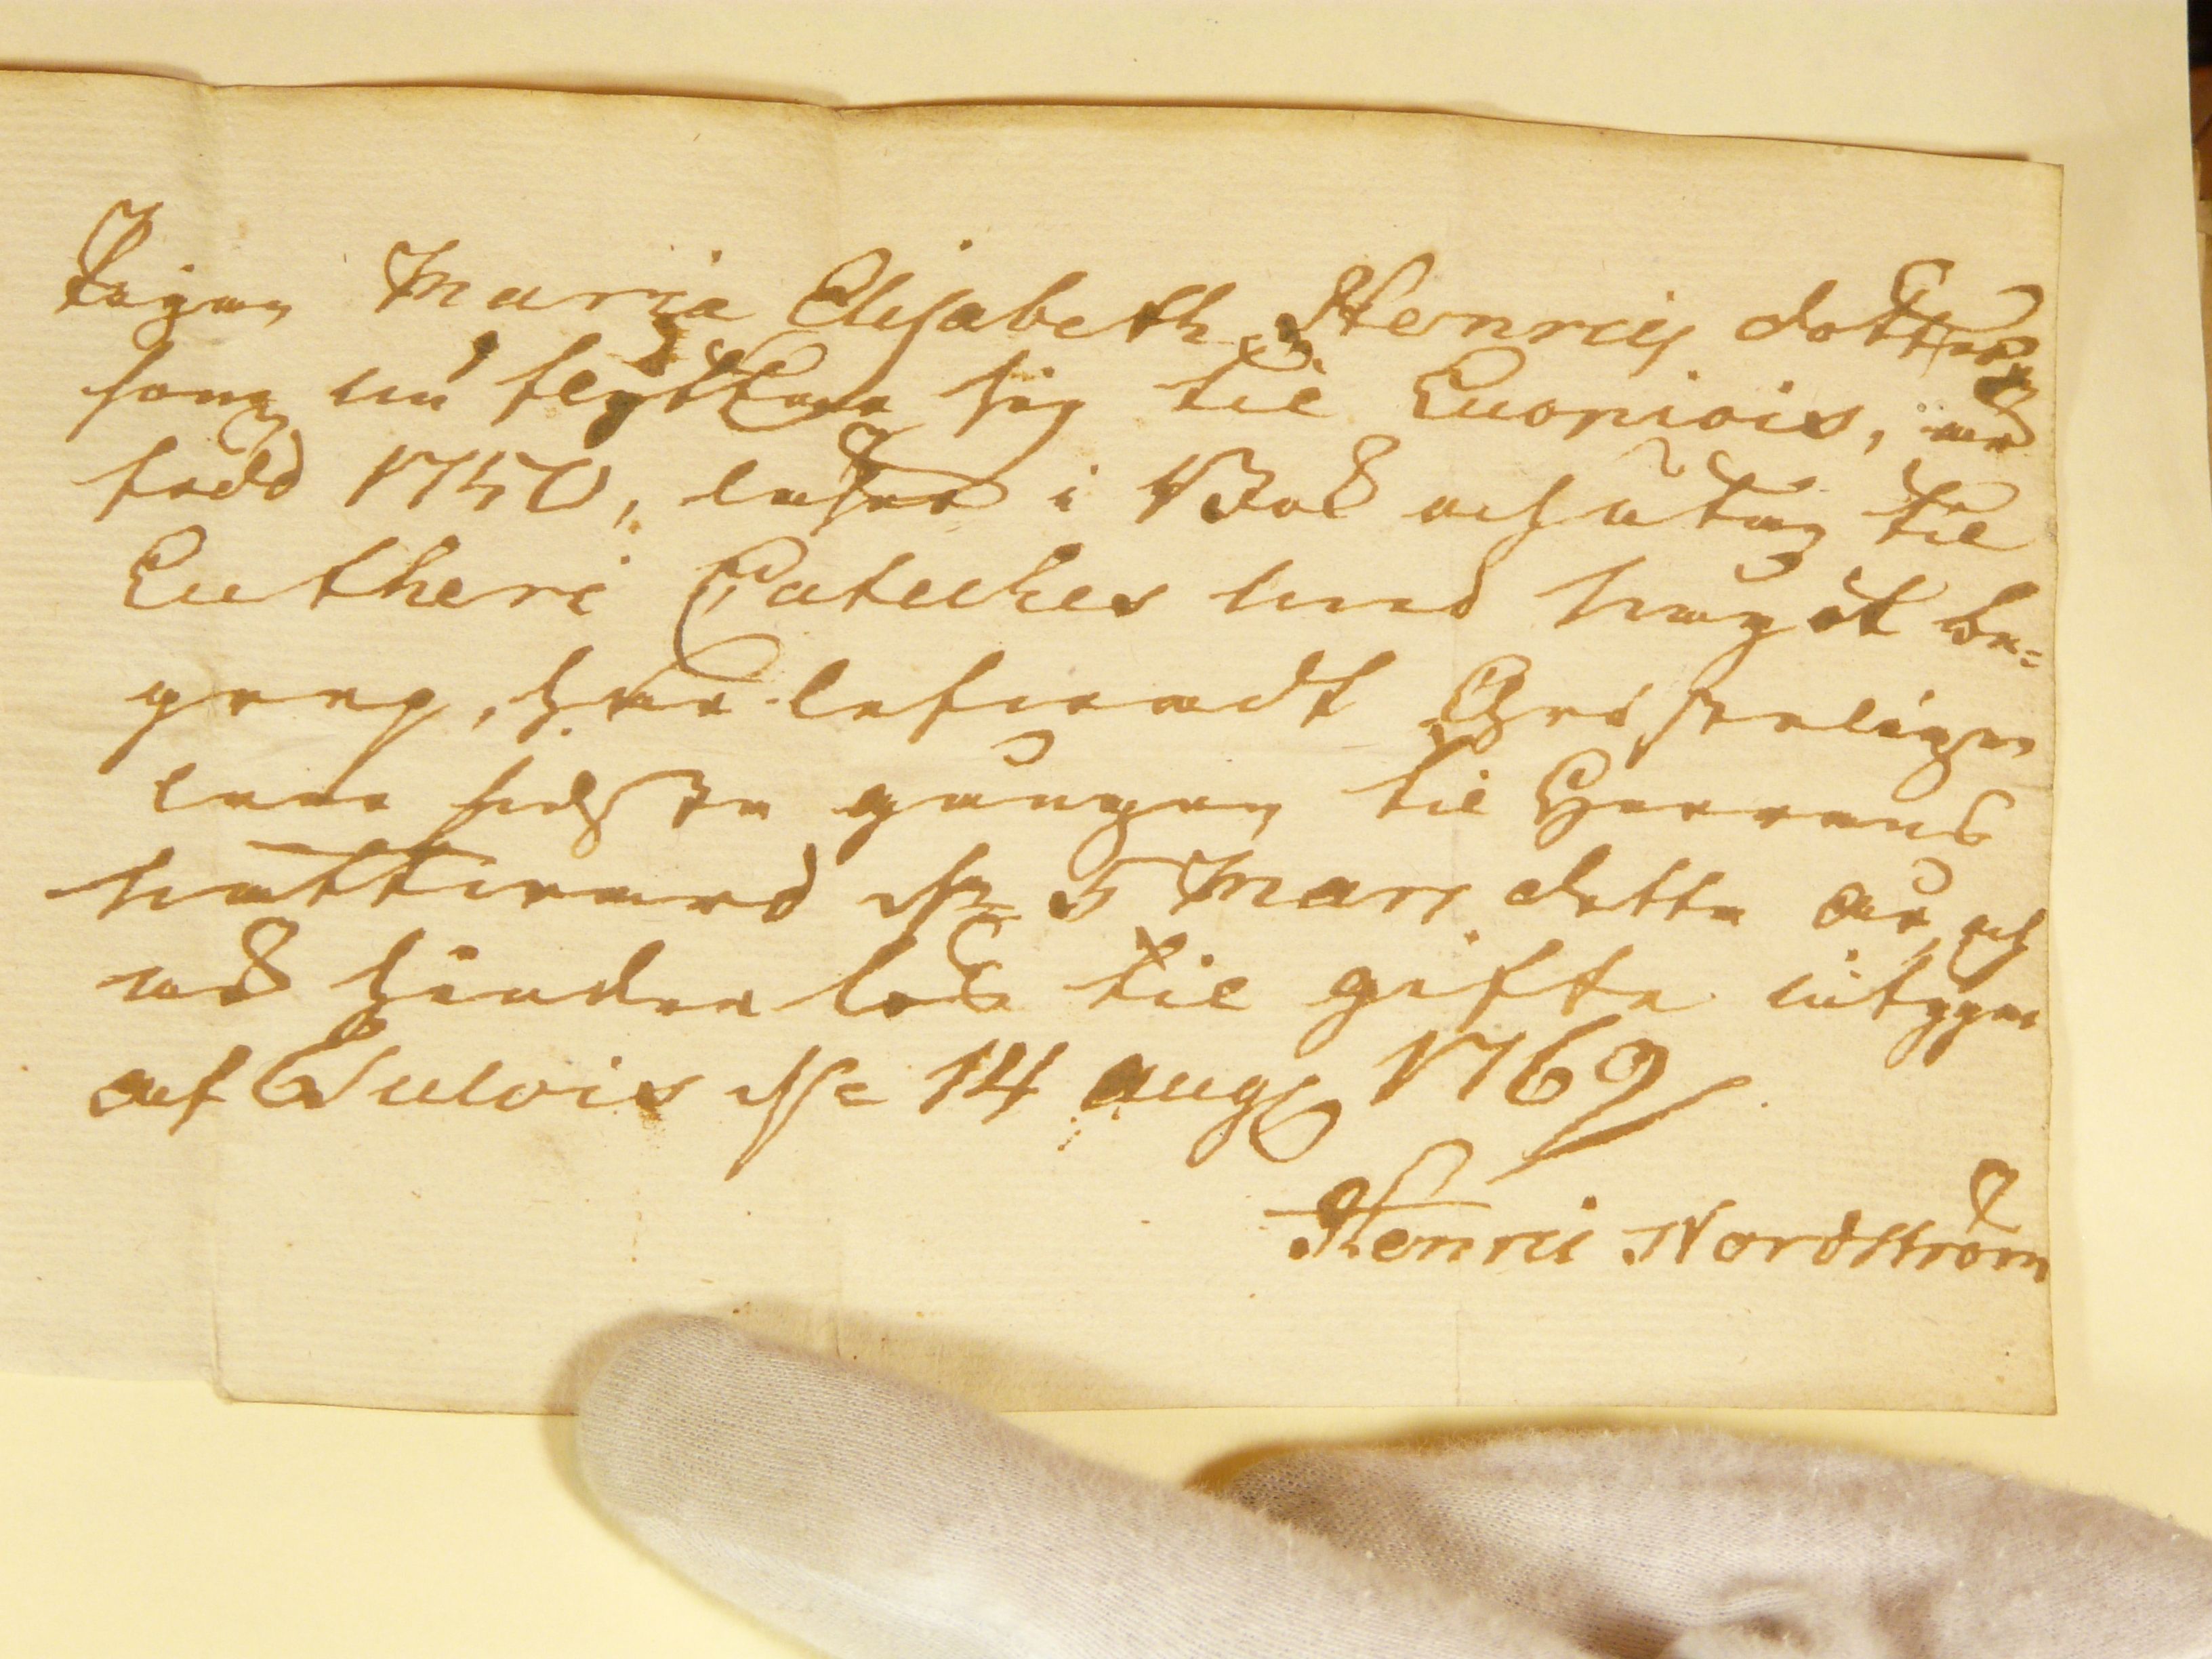 Pigan Maria Elisabeth Henrics dotter
som nu flyttar sig til Luopiois, är
född 1750, läser i Bok och utan til
Lutheri Cateches med något be=
grep, har lefvadt Christeligen
sidsta gången til Herrens
nattvard d. 5 Mars detta år, och
är hinderlös til gifte intygar
af Tulois d. 14 aug 1769
Henric Nordström